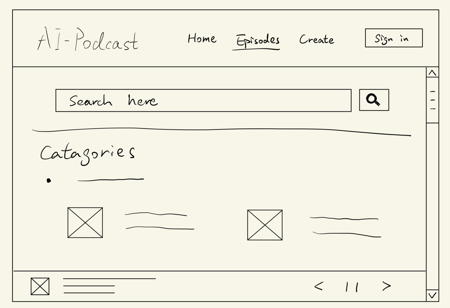 AI-Podcast
Home Episodes Create Sign in
Search here
Catagories